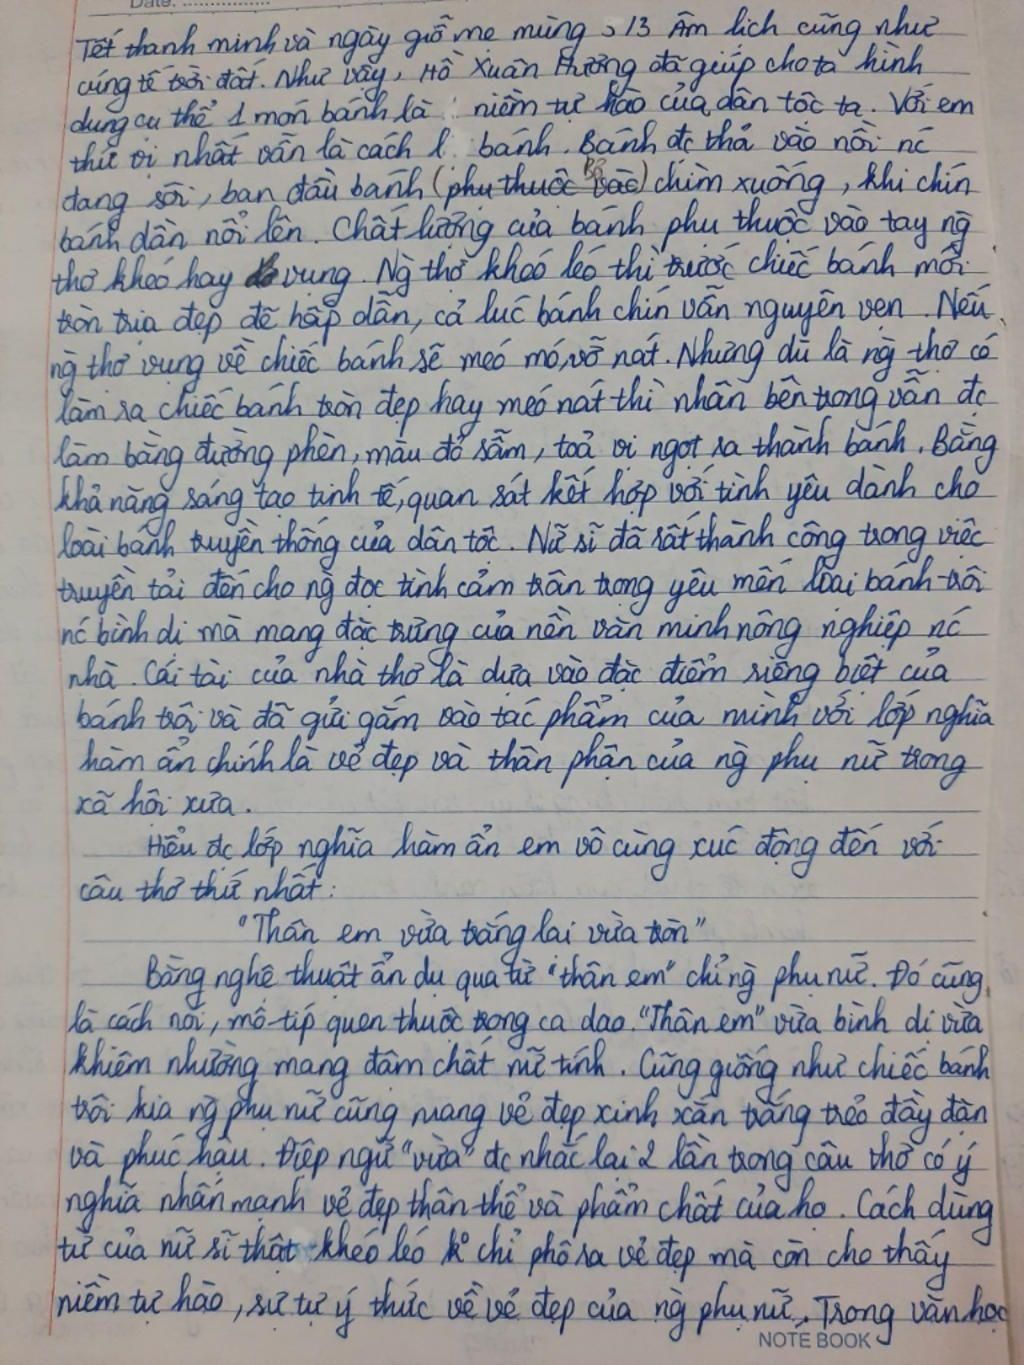 Date:
Tết thanh minh và ngày giỗ mẹ mùng 3/3 Âm lịch cũng như
cúng tế trời đất. Như vậy, Hồ Xuân Hương đã giúp cho ta hình
dung cụ thể 1 món bánh là niềm tự hào của dân tộc ta. Với em
thú vị nhất vẫn là cách l. bánh. Bánh đc thả vào nồi nc
đang sôi, ban đầu bánh (phụ thuộc vào) chìm xuống, khi chín
bánh dần nổi lên. Chất lượng của bánh phụ thuộc vào tay ng̀
thợ khéo hay vụng. Ng̀ thợ khéo léo thì trước chiếc bánh mới
tròn trịa đẹp đẽ hấp dẫn, cả lúc bánh chín vẫn nguyên vẹn. Nếu
ng̀ thợ vụng về chiếc bánh sẽ méo mó, vỡ nát. Nhưng dù là ng̀ thợ có
làm ra chiếc bánh tròn đẹp hay méo nát thì nhân bên trong vẫn đc
làm bằng đường phèn, màu đỏ sẫm, toả vị ngọt ra thành bánh. Bằng
khả năng sáng tạo tinh tế, quan sát kết hợp với tình yêu dành cho
loài bánh truyền thống của dân tộc. Nữ sĩ đã rất thành công trong việc
truyền tải đến cho ng̀ đọc tình cảm trân trọng yêu mến loại bánh trôi
nc bình dị mà mang đặc trưng của nền văn minh nông nghiệp nc
nhà. Cái tài của nhà thơ là dựa vào đặc điểm riêng biệt của
bánh trôi và đã gửi gắm vào tác phẩm của mình với lớp nghĩa
hàm ẩn chính là vẻ đẹp và thân phận của ng̀ phụ nữ trong
xã hội xưa.
Hiểu đc lớp nghĩa hàm ẩn em vô cùng xúc động đến với
câu thơ thứ nhất:
"Thân em vừa trắng lại vừa tròn"
Bằng nghệ thuật ẩn dụ qua từ "thân em" chỉ ng̀ phụ nữ. Đó cũng
là cách nói, mô-típ quen thuộc trong ca dao. "Thân em" vừa bình dị vừa
khiêm nhường mang đậm chất nữ tính. Cũng giống như chiếc bánh
trôi kia ng̀ phụ nữ cũng mang vẻ đẹp xinh xắn trắng trẻo đầy đặn
và phúc hậu. Điệp ngữ "vừa" đc nhắc lại 2 lần trong câu thơ có ý
nghĩa nhấn mạnh vẻ đẹp thân thể và phẩm chất của họ. Cách dùng
từ của nữ sĩ thật khéo léo k° chỉ phô ra vẻ đẹp mà còn cho thấy
niềm tự hào, sự tự ý thức về vẻ đẹp của ng̀ phụ nữ. Trong văn học
NOTE BOOK